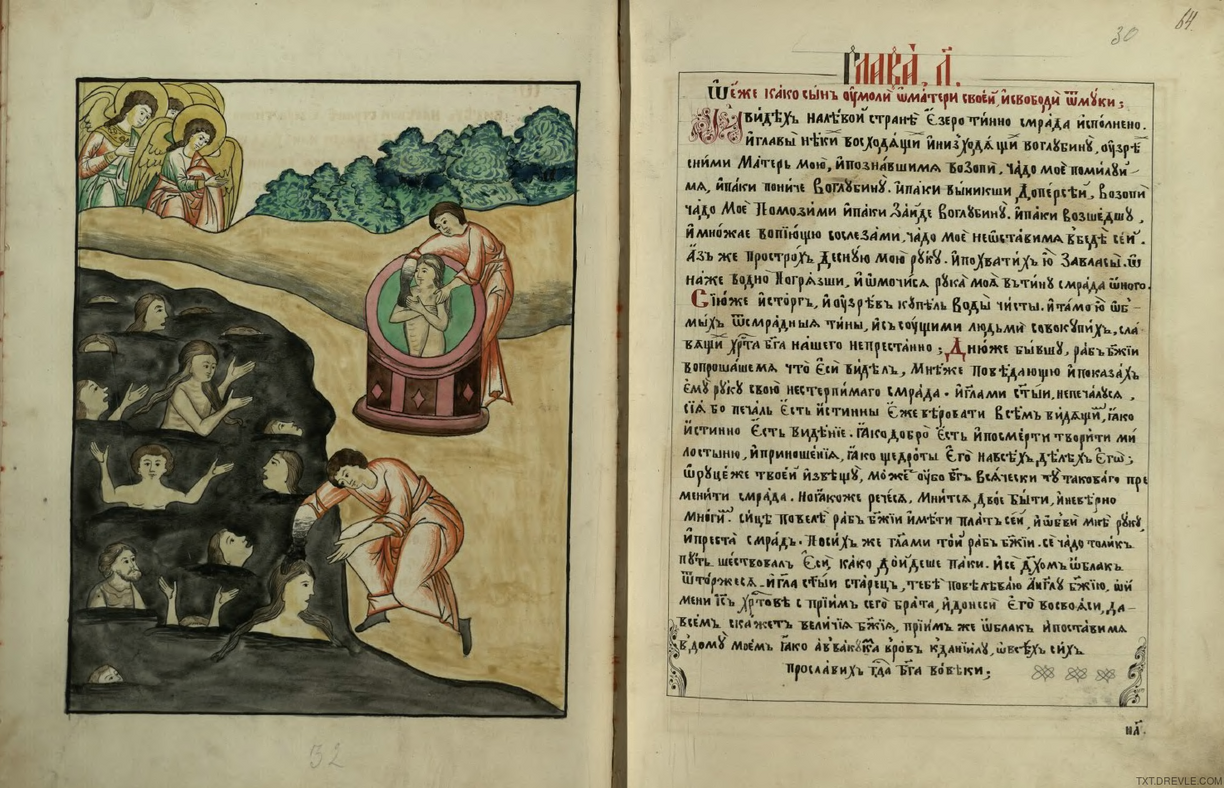 32
30
64
Глава. Л҃.
Ѿе́же ка́ко сы́нъ оу҆моли̂ ѡ҆ ма́тери свое́й, и҆свободи̂ ѿ мꙋ́ки;
И҆ ви́дѣхъ налѣ́вой странѣ̀ є҆́зеро ти́нно смра́да и҆спо́лнено.
и҆ главы̀ нѣ́ки восходѧ́щи и҆ низходѧ́щи воглꙋбинꙋ̀, оу҆зрѣ́
сни́ми Ма́терь мою̀, и҆познавшимѧ возопѝ, ча́до моѐ поми́лꙋй
мѧ, и҆па́ки пони́че Воглꙋбинꙋ̀. и҆па́ки выни́кши Допе́рсѣй, Возопѝ
ча́до Моѐ Помози́ми и҆па́ки За́йде Воглꙋбинꙋ̀. и҆па́ки Возше́дшꙋ,
и҆ мно́жае вопїю́щꙋ сослеза́ми, ча́до моѐ неѡ҆ста́вимѧ вбедѣ̀ се́й.
А҆́зъ же Простро́хъ Деснꙋ́ю мою̀ рꙋ́кꙋ. и҆похвати́хъ ю҆̀ Завласы̀. Ѿ
на́же во дно̀ Погрѧ́зши, и҆ ѡ҆мочи́сѧ рꙋка̀ моѧ̀ вти́нꙋ смра́да ѡ҆́ного.
Сїю́же и҆сто́ргъ, и҆ оу҆зрѣ́въ кꙋпѣ́ль воды̀ чи́сты. и҆та́мо ю҆̀ ѡ҆б
мы́хъ Ѿсмра́дныѧ ти́ны, и҆съ сꙋ́щими людьмѝ совокꙋпи́хъ, сла
вѧ́щи хр҃та̀ бг҃а на́шего непреста́нно; Дню́же бы́вшꙋ, ра́бъ бж҃їи
вопроша́шемѧ что̀ є҆сѝ ви́дѣлъ, Мнѣ́же Повѣ́дающю и҆показа́хъ
є҆мꙋ̀ рꙋ́кꙋ свою̀ нестерпи́маго смра́да. и҆гл҃а ми ст҃ы́и, непеча́лꙋсѧ,
сїѧ̀ бо печа́ль є҆́сть и҆́стинны є҆́же вѣ́ровати всѣ́мъ ви́дѧщи, ꙗ҆́ко
и҆́стинно є҆́сть видѣ́нїе. ꙗ҆́ко добро̀ є҆́сть и҆посме́рти твори́ти ми
лостыню, и҆приноше́нїѧ, ꙗ҆́ко щедро́ты є҆го̀ навсѣ́хъ дѣ́лѣхъ є҆гѡ̀;
Ѿрꙋце́же твое́й и҆звѣ́щꙋ, мо́же оу҆́бо бг҃ъ всѧ́чески тꙋ̀ такова́го пре
мени́ти смра́да. Но ꙗ҆́коже рече́сѧ, Мни́тсѧ, дво́е бы́ти, и҆невѣ́рно
мно́ги. си́це повелѣ̀ ра́бъ бж҃їи и҆мѣ́ти пла́тъ се́й, и҆ ѡ҆бвѝ мнѣ̀ рꙋ́кꙋ,
и҆преста̀ смра́дъ. По си́хъ же гл҃а ми то́й ра́бъ бж҃їи. сѐ ча́до толи́къ
пꙋ́ть ше́ствовалъ є҆сѝ, ка́ко до́йдеше па́ки. и҆ сѐ дꙋ́хомъ ѡ҆́блакъ
ѿто́ржесѧ. и҆гл҃а ст҃ы́и ста́рецъ, тебѣ̀ повелѣва́ю А҆́нг҃лꙋ бж҃їю, ѡ҆ и҆́
мени І҆и҃съ Хр҃то́вѣ спрїи́мъ сего̀ бра́та, и҆донесѝ є҆го̀ восвоѧ́си, да
всѣ́мъ ска́жетъ вели́чїѧ бж҃їѧ, прїи́мъ же ѡ҆́блакъ и҆поста́вимѧ
вдомꙋ̀ мое́мъ ꙗ҆́ко а҆ввакꙋ́ма вро́въ к данїи́лꙋ, ѡ҆всѣ́хъ си́хъ
просла́вихъ гд҃а бг҃а во́вѣки;
TXT.DREVLE.COM